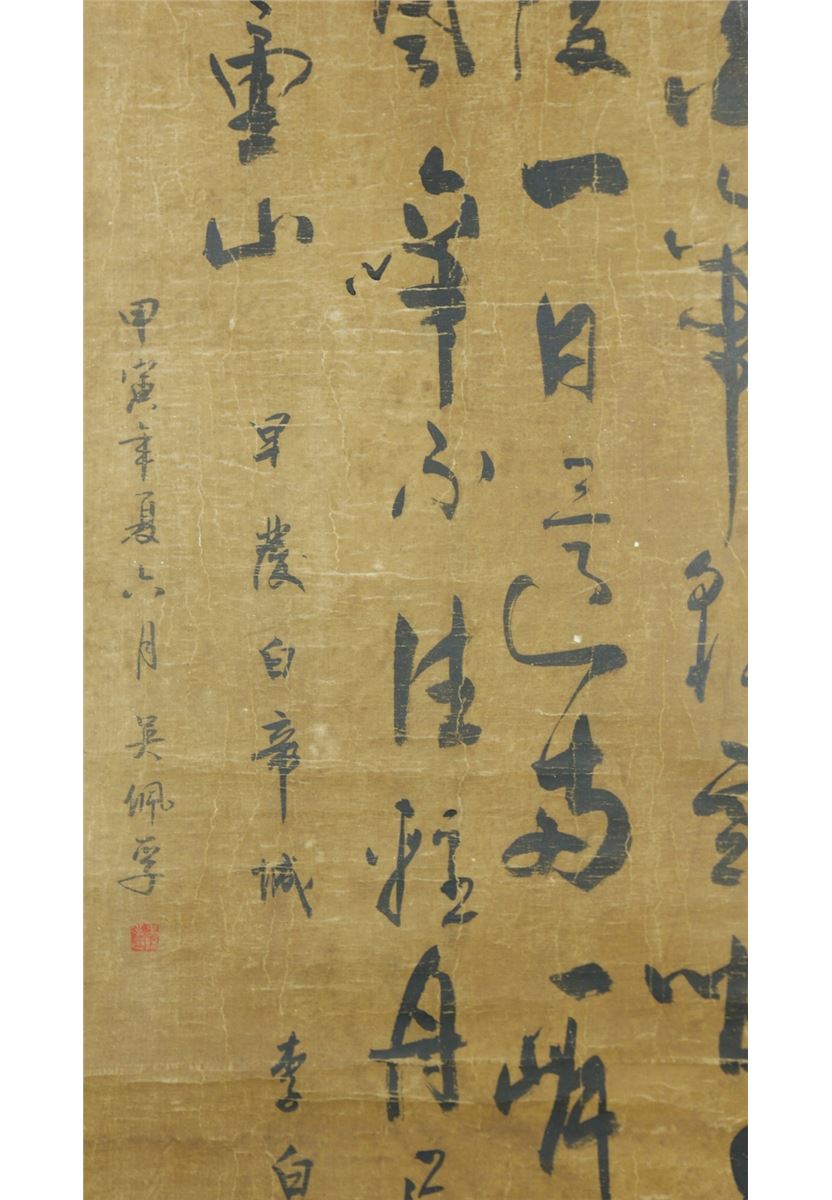 帝彩云
陵一日還两岸
聲啼不住輕舟已
重山
早發白帝城 李白
甲寅年夏六月 吳佩孚